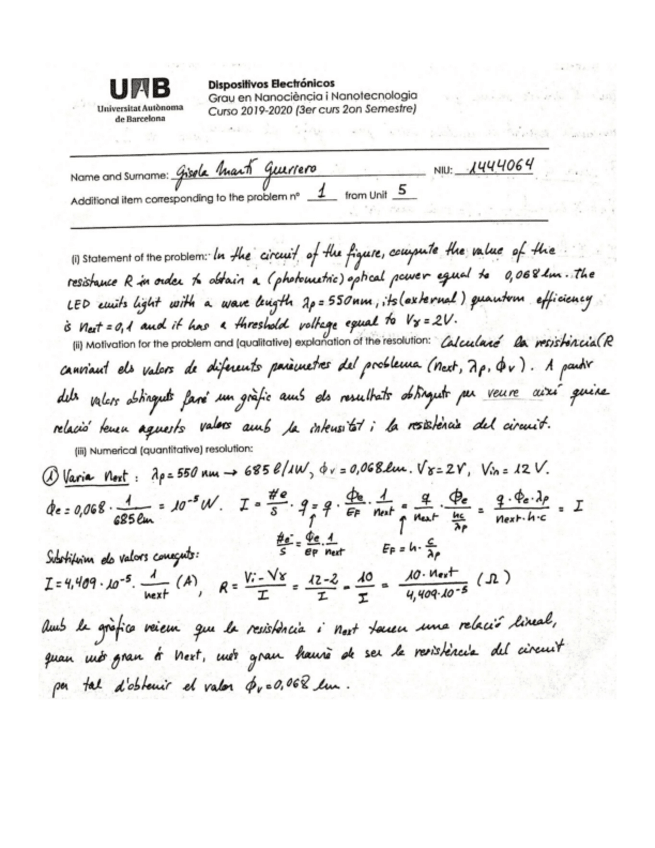 UAB
Universitat Autònoma
de Barcelona
Dispositivos Electrónicos
Grau en Nanociència i Nanotecnologia
Curso 2019-2020 (3er curs 2on Semestre)
Name and Surname: Gisela Martí Guerrero NIU: 1444064
Additional item corresponding to the problem nº 1 from Unit 5
(i) Statement of the problem: In the circuit of the figure, compute the value of the
resistance R in order to obtain a (photometric) optical power equal to 0,068 lm. The
LED emits light with a wave length λp = 550nm, its (external) quantum efficiency
is ηext = 0,1 and it has a threshold voltage equal to Vγ = 2V.
(ii) Motivation for the problem and (qualitative) explanation of the resolution: Calcularé la resistència R
canviant els valors de diferents paràmetres del problema (ηext, λp, ϕv). A partir
dels valors obtinguts faré un gràfic amb els resultats obtinguts per veure així quina
relació tenen aquests valors amb la intensitat i la resistència del circuit.
(iii) Numerical (quantitative) resolution:
① Varia ηext : λp = 550 nm → 685 l/1W, ϕv = 0,068 lm. Vγ = 2V, Vin = 12 V.
ϕe = 0,068 · 1/685 lm = 10⁻⁵ W. I = #e/S · q = q · ϕe/EF · 1/ηext = q/ηext · ϕe/(hc/λp) = q · ϕe · λp/ηext · h · c = I
#e⁻/S = ϕe/EP · 1/ηext EF = h · c/λp
Substituim els valors coneguts:
I = 4,409 · 10⁻⁵ · 1/ηext (A), R = Vi - Vγ/I = 12-2/I = 10/I = 10 · ηext/4,409 · 10⁻⁵ (Ω)
Amb la gràfica veiem que la resistència i ηext tenen una relació lineal,
quan més gran és ηext, més gran haurà de ser la resistència del circuit
per tal d'obtenir el valor ϕv = 0,068 lm.